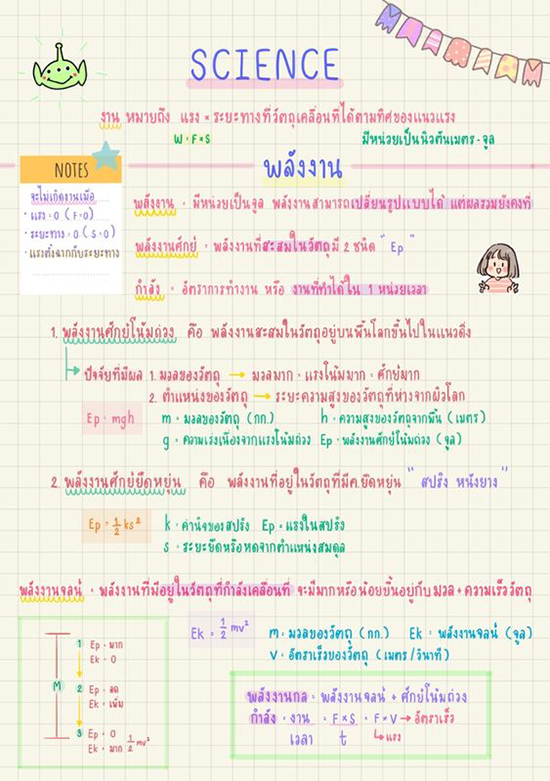 SCIENCE
งาน หมายถึง แรง × ระยะทางที่วัตถุเคลื่อนที่ได้ตามทิศของแนวแรง
W = F × S มีหน่วยเป็นนิวตันเมตร - จูล
พลังงาน
NOTES
จะไม่เกิดงานเมื่อ
• แรง = 0 (F=0)
• ระยะทาง = 0 (S=0)
• แรงตั้งฉากกับระยะทาง
พลังงาน = มีหน่วยเป็นจูล พลังงานสามารถเปลี่ยนรูปแบบได้ แต่ผลรวมยังคงที่
พลังงานศักย์ = พลังงานที่สะสมในวัตถุมี 2 ชนิด " Ep "
กำลัง = อัตราการทำงาน หรือ งานที่ทำได้ใน 1 หน่วยเวลา
1. พลังงานศักย์โน้มถ่วง คือ พลังงานสะสมในวัตถุอยู่บนพื้นโลกขึ้นไปในแนวดิ่ง
ปัจจัยที่มีผล 1. มวลของวัตถุ → มวลมาก = แรงโน้มมาก = ศักย์มาก
2. ตำแหน่งของวัตถุ → ระยะความสูงของวัตถุที่ห่างจากผิวโลก
Ep = mgh m = มวลของวัตถุ (กก.) h = ความสูงของวัตถุจากพื้น (เมตร)
g = ความเร่งเนื่องจากแรงโน้มถ่วง Ep = พลังงานศักย์โน้มถ่วง (จูล)
2. พลังงานศักย์ยืดหยุ่น คือ พลังงานที่อยู่ในวัตถุที่มีค.ยืดหยุ่น " สปริง หนังยาง "
Ep = 1/2 ks² k = ค่านิจของสปริง Ep = แรงในสปริง
s = ระยะยืดหรือหดจากตำแหน่งสมดุล
พลังงานจลน์ = พลังงานที่มีอยู่ในวัตถุที่กำลังเคลื่อนที่ จะมีมากหรือน้อยขึ้นอยู่กับมวล + ความเร็ววัตถุ
Ek = 1/2 mv² m = มวลของวัตถุ (กก.) Ek = พลังงานจลน์ (จูล)
v = อัตราเร็วของวัตถุ (เมตร/วินาที)
M
1 Ep = มาก
Ek = 0
2 Ep = ลด
Ek = เพิ่ม
3 Ep = 0
Ek = มาก 1/2 mv²
พลังงานกล = พลังงานจลน์ + ศักย์โน้มถ่วง
กำลัง = งาน = F×S = F×V → อัตราเร็ว
เวลา t ↳ แรง